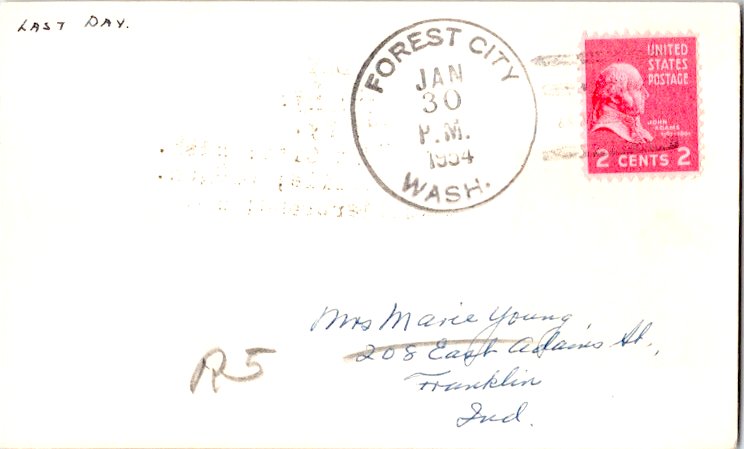 LAST DAY.
FOREST CITY
JAN
30
P.M.
1954
WASH.
UNITED
STATES
POSTAGE
JOHN
ADAMS
2 CENTS 2
Mrs Marie Young,
208 East Adams St.,
Franklin
Ind.
R5